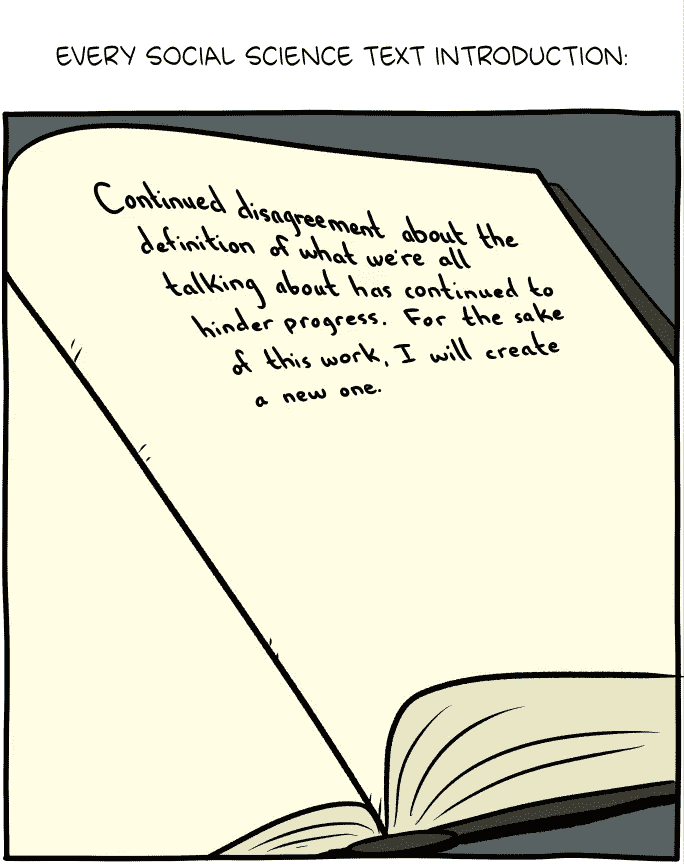 EVERY SOCIAL SCIENCE TEXT INTRODUCTION:
Continued disagreement about the
definition of what we're all
talking about has continued to
hinder progress. For the sake
of this work, I will create
a new one.